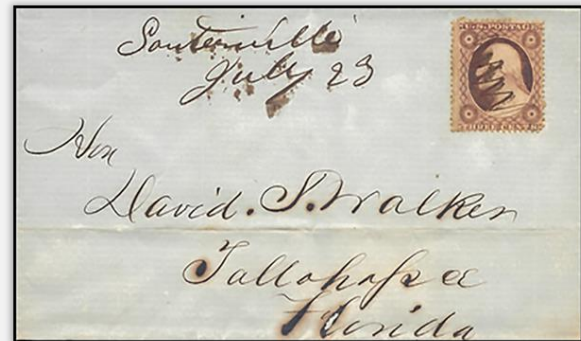 Souterville
July 23
U.S. POSTAGE
THREE CENTS
Hon
David. S. Walker
Tallahassee
Florida